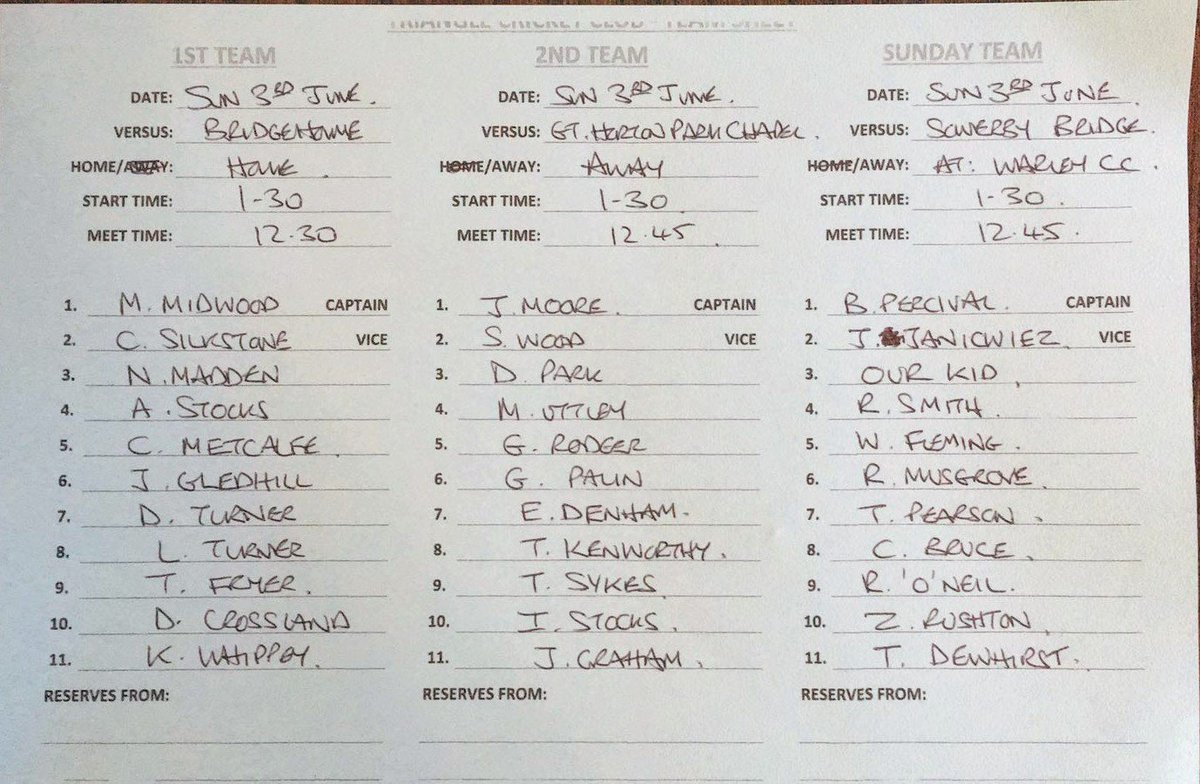 TRIANGLE CRICKET CLUB - TEAM SHEET
1ST TEAM
DATE: SUN 3RD JUNE.
VERSUS: BRIDGEHOLME
HOME/AWAY: HOME.
START TIME: 1-30
MEET TIME: 12.30
1. M. MIDWOOD CAPTAIN
2. C. SILKSTONE VICE
3. N. MADDEN
4. A. STOCKS
5. C. METCALFE.
6. J. GLEDHILL
7. D. TURNER
8. L. TURNER
9. T. FRYER.
10. D. CROSSLAND
11. K. WHIPPEY.
RESERVES FROM:
2ND TEAM
DATE: SUN 3RD JUNE.
VERSUS: GT. HORTON PARK CHAPEL.
HOME/AWAY: AWAY
START TIME: 1-30
MEET TIME: 12.45.
1. J. MOORE. CAPTAIN
2. S. WOOD VICE
3. D. PARK
4. M. UTTLEY
5. G. RODGER
6. G. PALIN
7. E. DENHAM.
8. T. KENWORTHY.
9. T. SYKES.
10. I. STOCKS.
11. J. GRAHAM.
RESERVES FROM:
SUNDAY TEAM
DATE: SUN 3RD JUNE.
VERSUS: SOWERBY BRIDGE.
HOME/AWAY: AT: WARLEY CC.
START TIME: 1-30.
MEET TIME: 12.45.
1. B. PERCIVAL. CAPTAIN
2. J. JANICWIEZ. VICE
3. OUR KID.
4. R. SMITH.
5. W. FLEMING.
6. R. MUSGROVE.
7. T. PEARSON.
8. C. BRUCE.
9. R. 'O'NEIL.
10. Z. RUSHTON.
11. T. DEWHIRST.
RESERVES FROM: